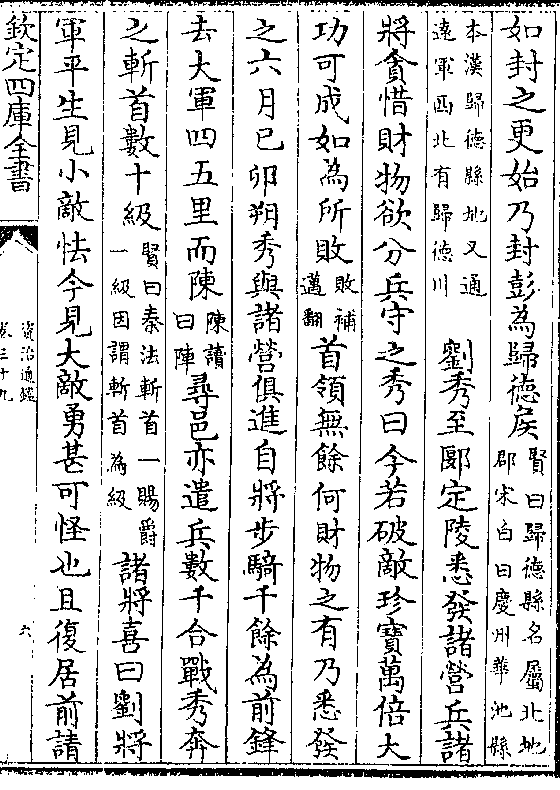 如封之更始乃封彭為歸徳侯賢曰歸徳縣名屬北地郡宋白曰慶州華池縣
本漢歸徳縣地又通逺軍西北有歸徳川 劉秀至郾定陵悉發諸營兵諸
將貪惜財物欲分兵守之秀曰今若破敵珍寶萬倍大
功可成如為所敗敗補邁翻首領無餘何財物之有乃悉發
之六月己卯朔秀與諸營俱進自將步騎千餘為前鋒
去大軍四五里而陳陳讀曰陣尋邑亦遣兵數千合戰秀奔
之斬首數十級賢曰秦法斬首一賜爵一級因謂斬首為級諸將喜曰劉將
軍平生見小敵怯今見大敵勇甚可怪也且復居前請
欽定四庫全書
資治通鑑
卷三十九
六